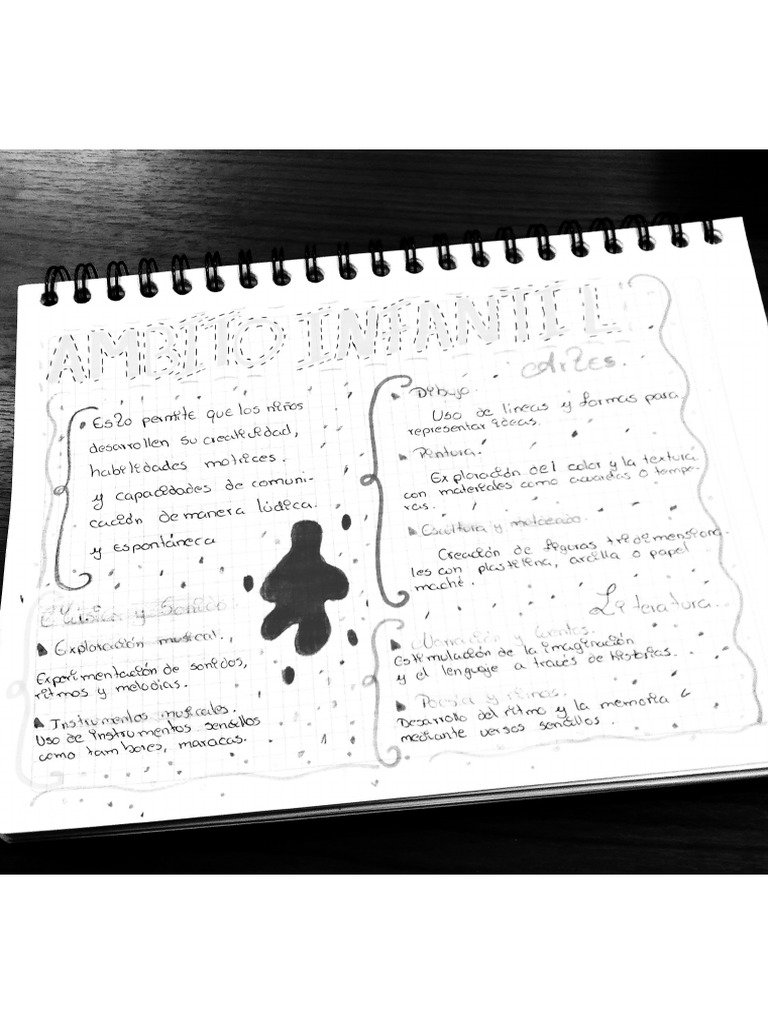 AMBITO INFANTIL
• Esto permite que los niños
desarrollen su creatividad,
habilidades motrices.
y capacidades de comuni-
cación de manera lúdica.
y espontánea
Música y Sonido.
Exploración musical.
Experimentación de sonidos,
ritmos y melodias.
Instrumentos musicales.
Uso de instrumentos sencillos
como tambores, maracas.
Artes.
Dibujo.
Uso de lineas y formas para
representar ideas.
Pintura.
Exploración del color y la textura
con materiales como acuarelas o tempe-
ras.
Escultura y modelado.
Creación de figuras tridimensiona-
les con plastilina, arcilla o papel
maché.
Literatura.
Narración y cuentos.
Estimulación de la imaginación
y el lenguaje a través de historias.
Poesia y rimas.
Desarrollo del ritmo y la memoria
mediante versos sencillos.